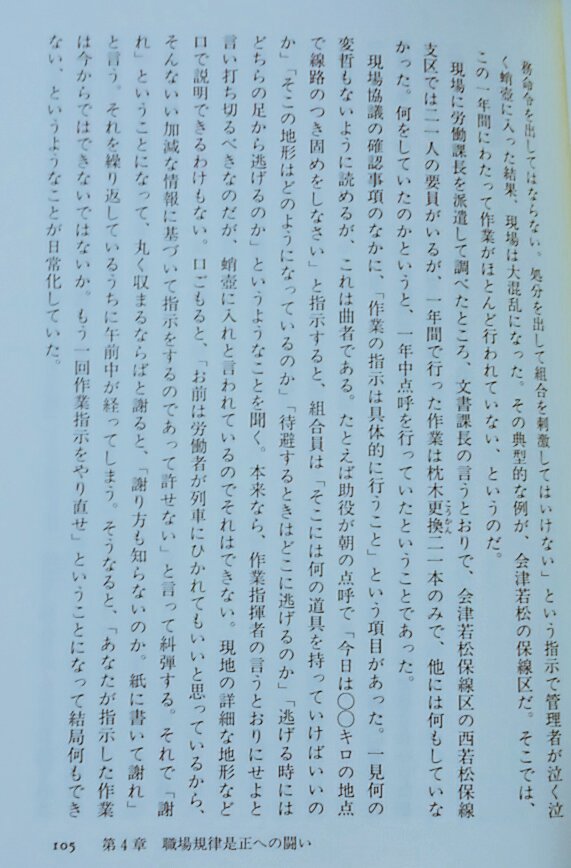 務命令を出してはならない。処分を出して組合を刺激してはいけない」という指示で管理者が泣く泣
く蛸壺に入った結果、現場は大混乱になった。その典型的な例が、会津若松の保線区だ。そこでは、
この一年間にわたって作業がほとんど行われていない、というのだ。
現場に労働課長を派遣して調べたところ、文書課長の言うとおりで、会津若松保線区の西若松保線
支区では二一人の要員がいるが、一年間で行った作業は枕木更換二一本のみで、他には何もしていな
こうかん
かった。何をしていたのかというと、一年中点呼を行っていたということであった。
現場協議の確認事項のなかに、「作業の指示は具体的に行うこと」という項目があった。一見何の
変哲もないように読めるが、これは曲者である。たとえば助役が朝の点呼で「今日は〇〇キロの地点
で線路のつき固めをしなさい」と指示すると、組合員は「そこには何の道具を持っていけばいいの
か」「そこの地形はどのようになっているのか」「待避するときはどこに逃げるのか」「逃げる時には
どちらの足から逃げるのか」というようなことを聞く。本来なら、作業指揮者の言うとおりにせよと
言い打ち切るべきなのだが、蛸壺に入れと言われているのでそれはできない。現地の詳細な地形など
口で説明できるわけもない。口ごもると、「お前は労働者が列車にひかれてもいいと思っているから、
そんないい加減な情報に基づいて指示をするのであって許せない」と言って糾弾する。それで「謝
れ」ということになって、丸く収まるならばと謝ると、「謝り方も知らないのか。紙に書いて謝れ」
と言う。それを繰り返しているうちに午前中が経ってしまう。そうなると、「あなたが指示した作業
は今からではできないではないか。もう一回作業指示をやり直せ」ということになって結局何もでき
ない、というようなことが日常化していた。
105 第4章 職場規律是正への闘い